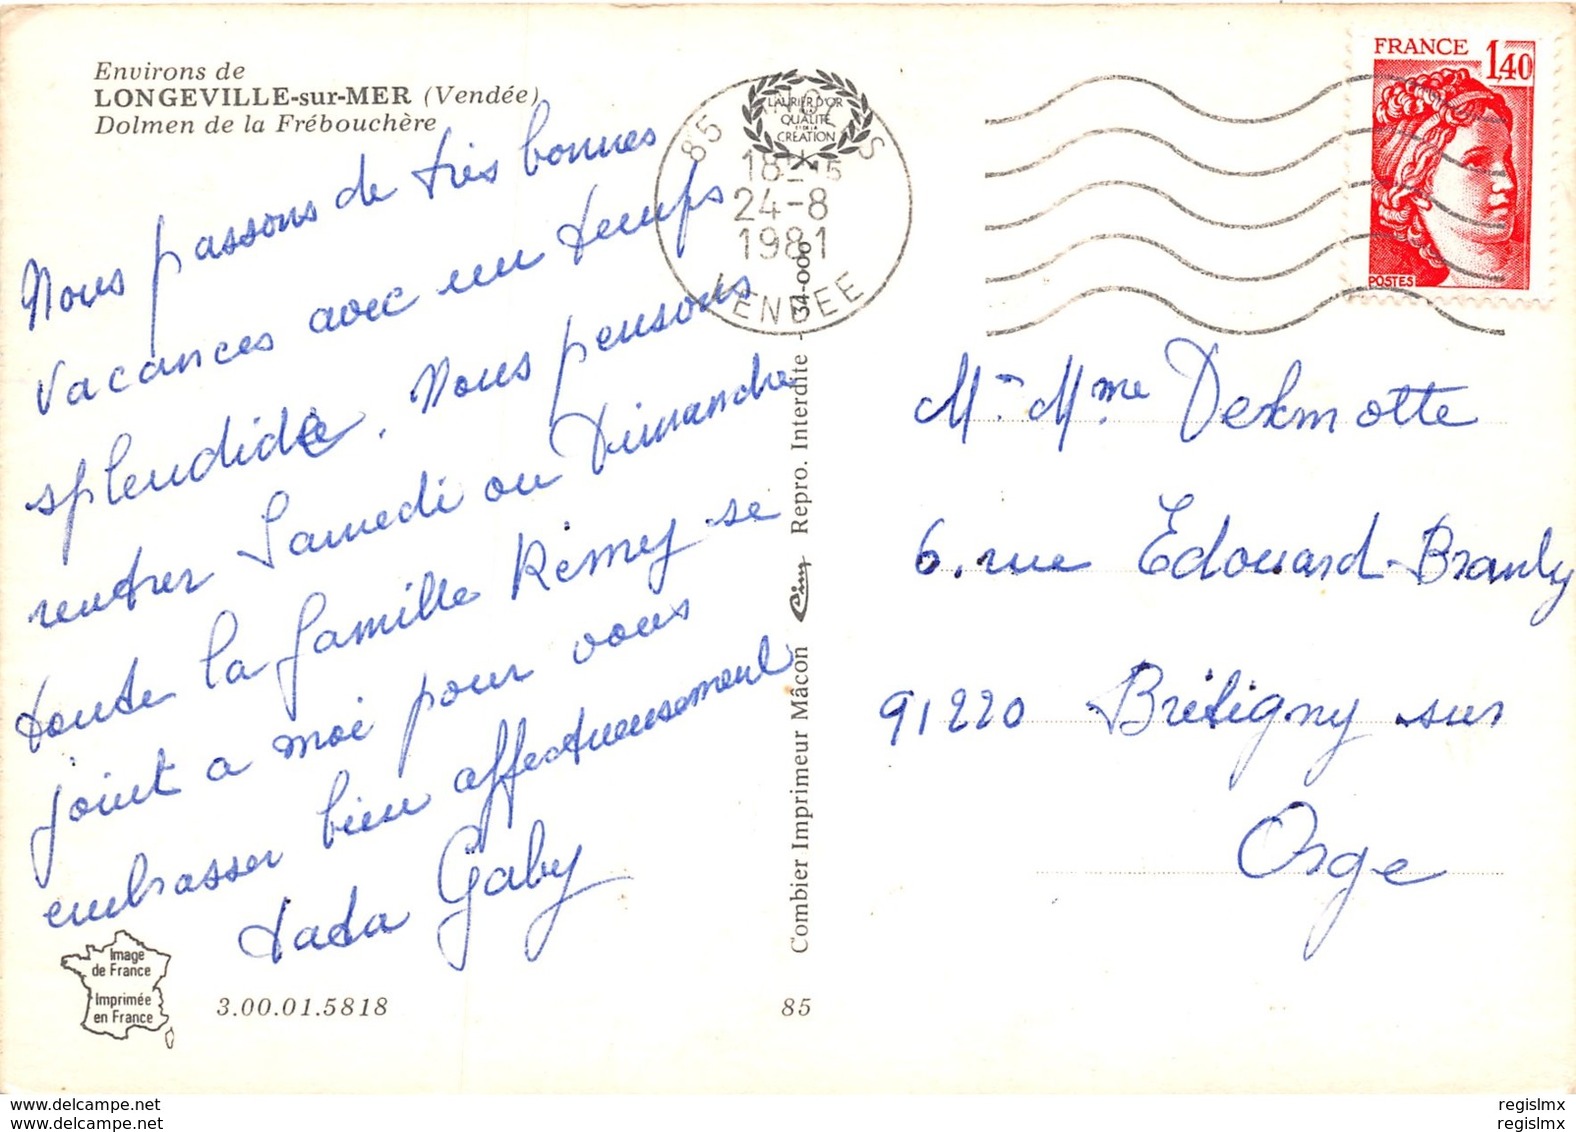 Environs de
LONGEVILLE-sur-MER (Vendée)
Dolmen de la Frébouchère
Nous passons de très bonnes
vacances avec un temps
splendide. Nous pensons
rentrer Samedi ou Dimanche
toute la famille Rémy se
joint a moi pour vous
embrasser bien affectueusement
tata Gaby
Image
de France
Imprimée
en France
3.00.01.5818
85
Combier Imprimeur Mâcon Cim Repro. Interdite - 34-000
LAURIER D'OR
QUALITÉ
CRÉATION
85
18H15
24-8
1981
VENDEE
FRANCE 1,40
POSTES
M. Mme Dermotte
6. rue Edouard-Branly
91220 Brétigny sur
Orge
regislmx
regislmx
regislmx
regislmx